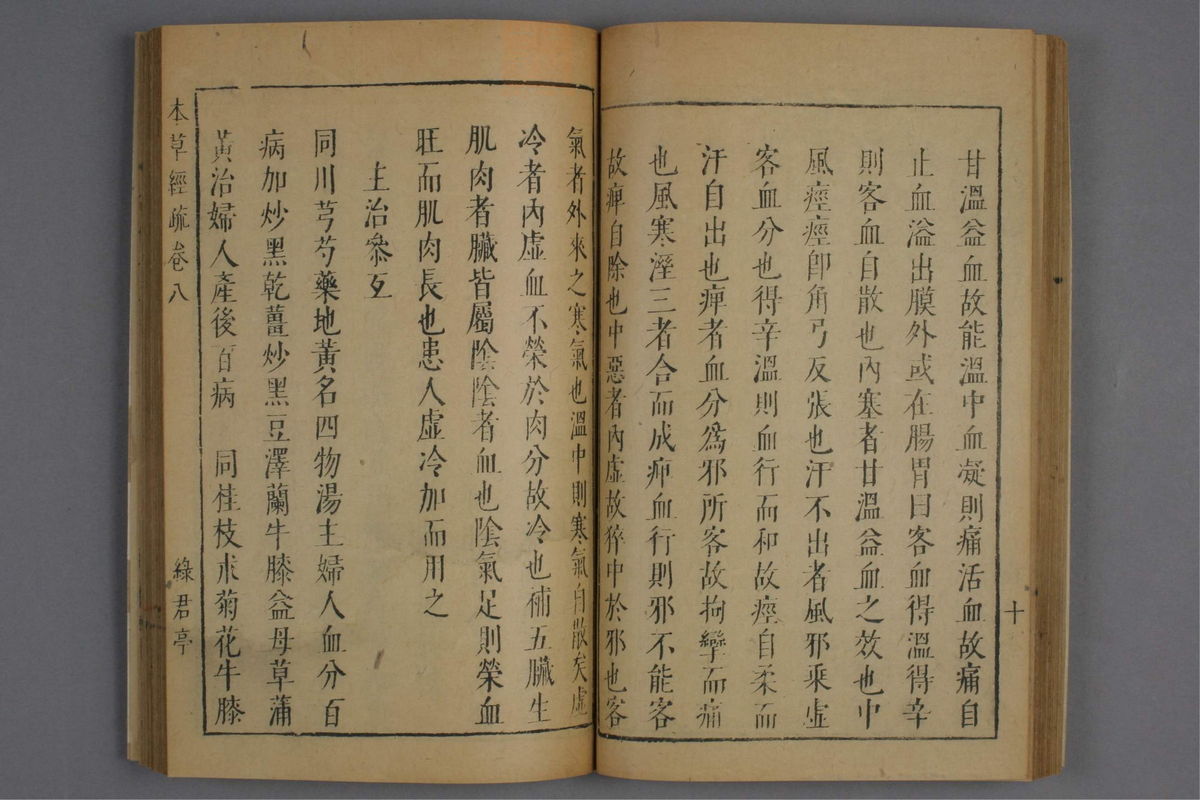 十
甘溫益血故能溫中血凝則痛活血故痛自
止血溢出膜外或在腸胃曰客血得溫得辛
則客血自散也內塞者甘溫益血之效也中
風痙痙卽角弓反張也汗不出者風邪乘虛
客血分也得辛溫則血行而和故痙自柔而
汗自出也痺者血分爲邪所客故拘攣而痛
也風寒溼三者合而成痺血行則邪不能客
故痺自除也中惡者內虛故猝中於邪也客
氣者外來之寒氣也溫中則寒氣自散矣虛
冷者內虛血不榮於肉分故冷也補五臟生
肌肉者臟皆屬陰陰者血也陰氣足則榮血
旺而肌肉長也患人虛冷加而用之
主治參互
同川芎芍藥地黃名四物湯主婦人血分百
病加炒黑乾薑炒黑豆澤蘭牛膝益母草蒲
黃治婦人產後百病 同桂枝朮菊花牛膝
本草經疏卷八
綠君亭